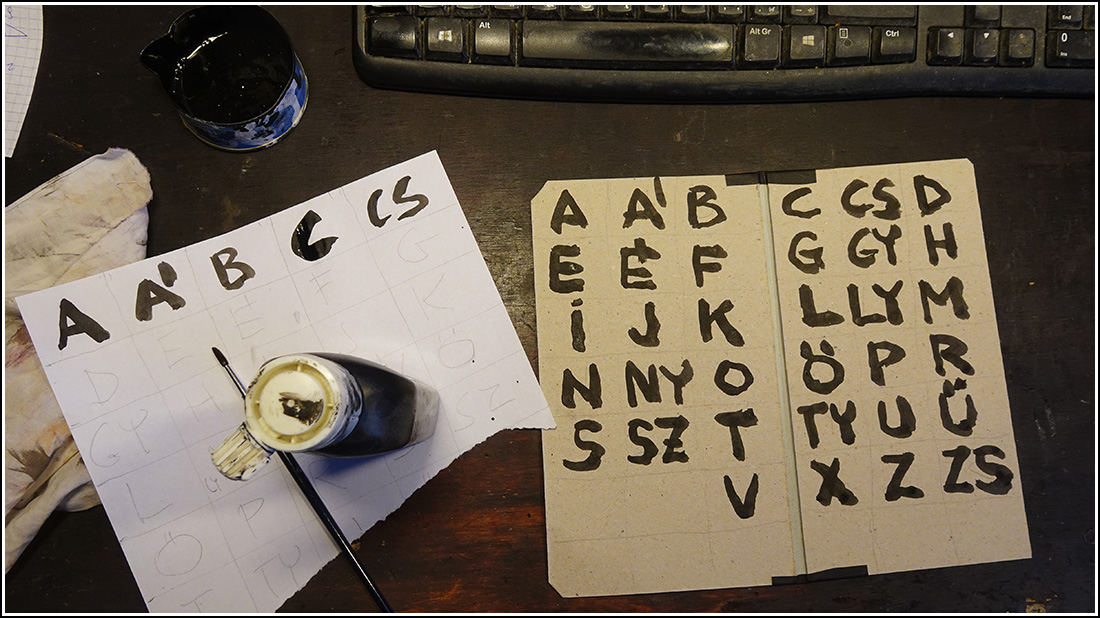 Alt
Alt Gr
Ctrl
End
0
Ins
A Á B C CS
D E E F G
GY H J K
L Ö
Ö P SZ
T TY
A Á B C CS D
E É F G GY H
İ J K L LLY M
N NY O Ö P R
S SZ T TY U Ü
V X Z ZS